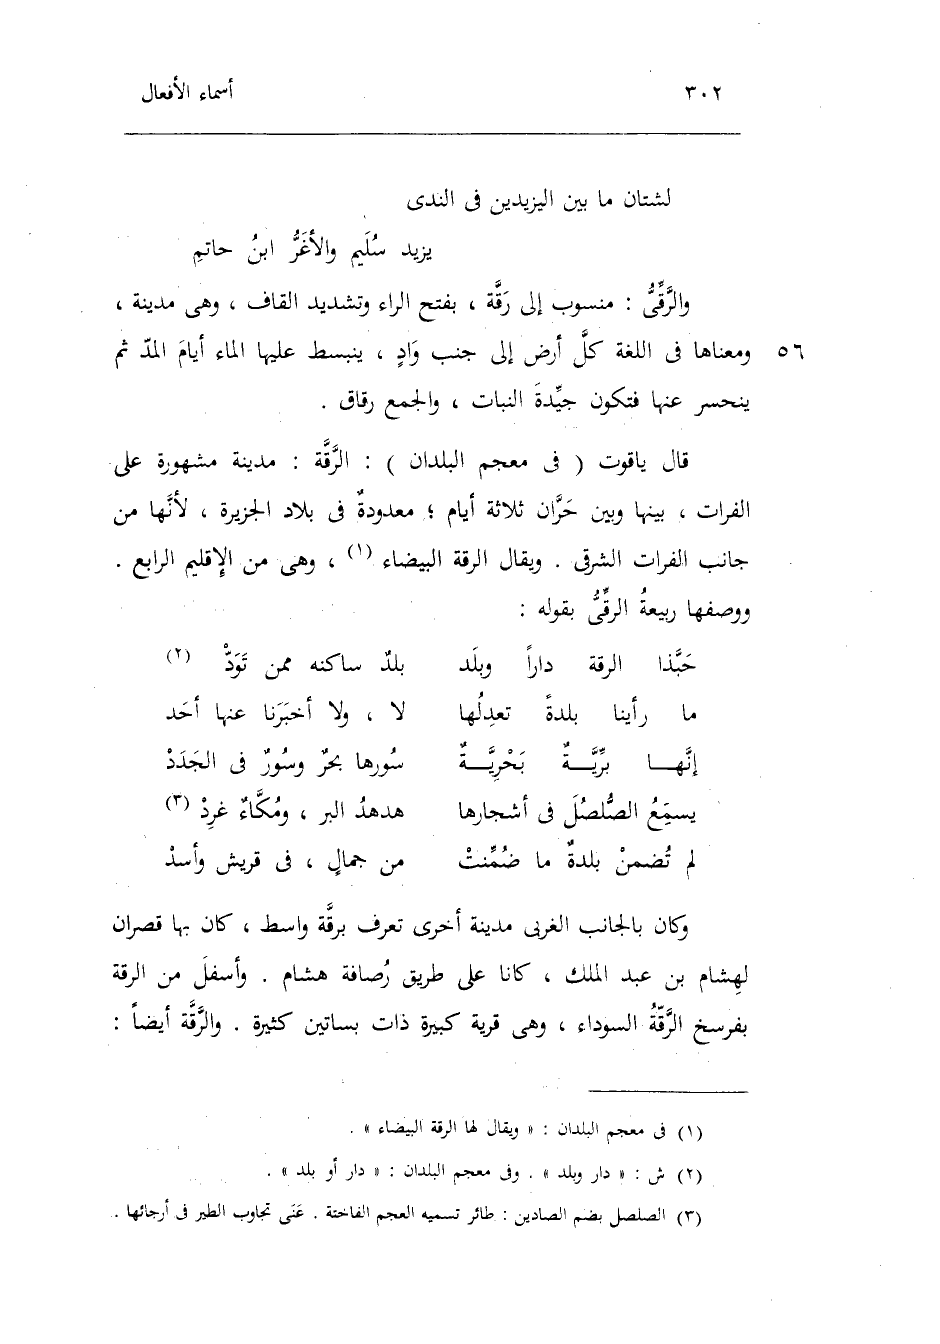 ٣٠٢ أسماء الأفعال
لشتان ما بين اليزيدين فى الندى
يزيد سُلَيم والأغَرُّ ابنُ حاتمِ
والرَّقِّىُّ : منسوب إلى رَقَّة ، بفتح الراء وتشديد القاف ، وهى مدينة ،
٥٦ ومعناها فى اللغة كلَّ أرض إلى جنب وَادٍ ، ينبسط عليها الماء أيامَ المدّ ثم
ينحسر عنها فتكون جيِّدةَ النبات ، والجمع رقاق .
قال ياقوت ( فى معجم البلدان ) : الرَّقَّة : مدينة مشهورة على
الفرات ، بينها وبين حَرَّان ثلاثة أيام ؛ معدودةٌ فى بلاد الجزيرة ، لأنَّها من
جانب الفرات الشرقى . ويقال الرقة البيضاء (١) ، وهى من الإقليم الرابع .
ووصفها ربيعةُ الرقِّىُّ بقوله :
حَبَّذا الرقة داراً وبلَد بلدٌ ساكنه ممن تَوَدّْ (٢)
ما رأينا بلدةً تعدِلُها لا ، ولا أخبَرَنا عنها أحَد
إنَّهـا برِّيَّـــةٌ بَحْرِيَّـــةٌ سُورها بحرٌ وسُورٌ فى الجَدَدْ
يسمَعُ الصُّلصُلَ فى أشجارها هدهدُ البر ، ومُكَّاءٌ غرِدْ (٣)
لم تُضمنْ بلدةٌ ما ضُمِّنتْ من جمالٍ ، فى قريش وأسدْ
وكان بالجانب الغربى مدينة أخرى تعرف برقَّة واسط ، كان بها قصران
لهِشام بن عبد الملك ، كانا على طريق رُصافة هشام . وأسفلَ من الرقة
بفرسخ الرَّقّةُ السوداء ، وهى قرية كبيرة ذات بساتين كثيرة . والرَّقَّة أيضاً :
(١) فى معجم البلدان : « ويقال لها الرقة البيضاء » .
(٢) ش : « دار وبلد » . وفى معجم البلدان : « دار أو بلد » .
(٣) الصلصل بضم الصادين : طائر تسميه العجم الفاختة . عَنَى تجاوب الطير فى أرجائها .